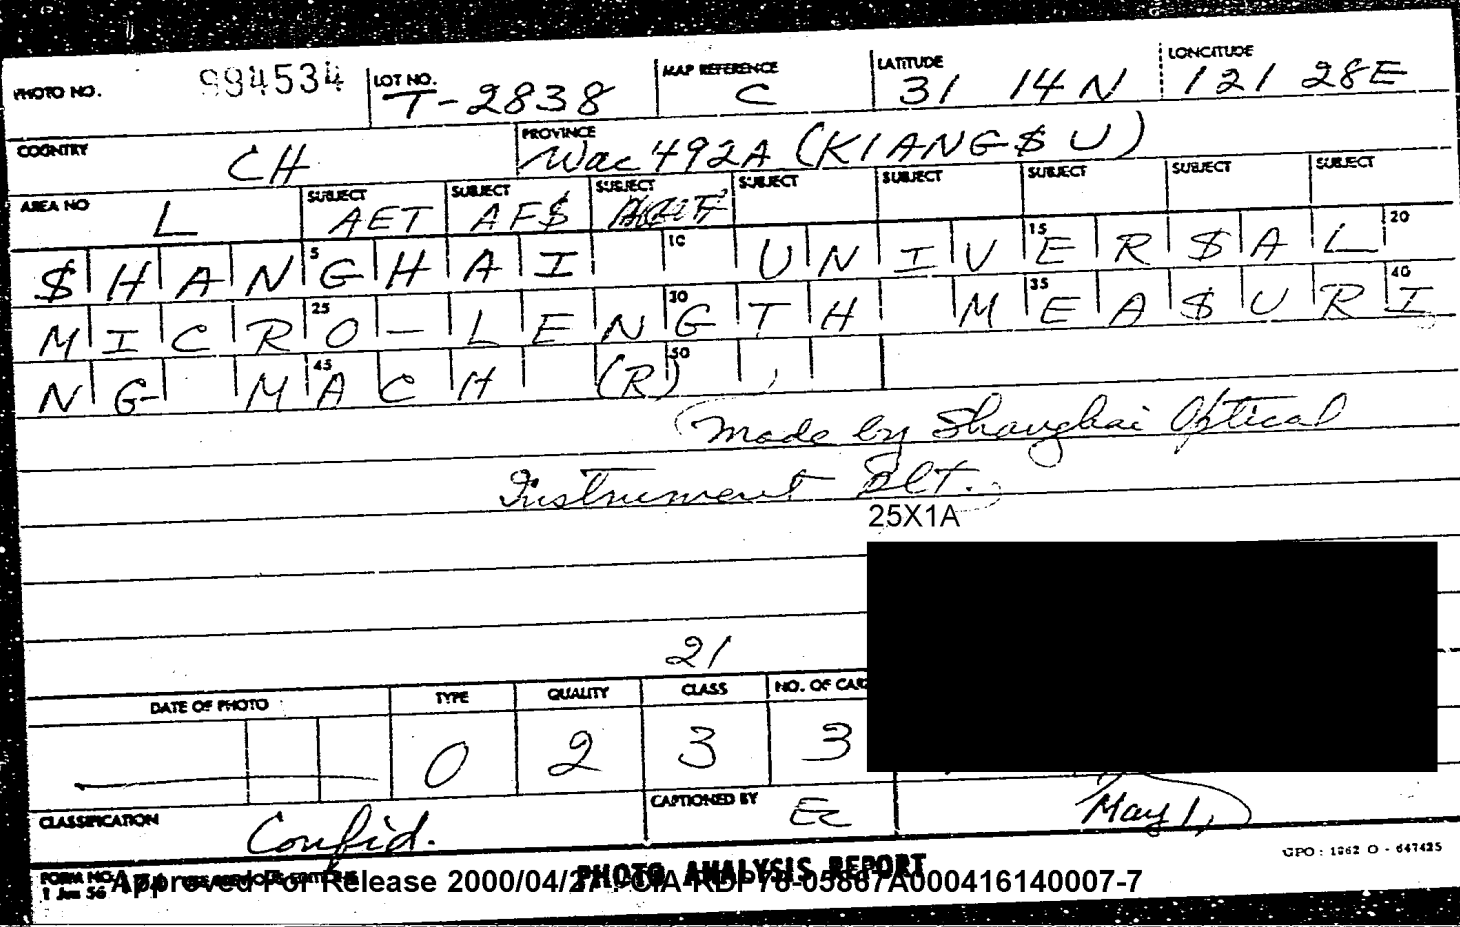 PHOTO NO. 994534 LOT NO. T-2838 MAP REFERENCE C LATITUDE 31 14N LONGITUDE 121 28E
COUNTRY CH PROVINCE Wac 492A (KIANG$U)
AREA NO L SUBJECT AET SUBJECT AF$ SUBJECT SUBJECT SUBJECT SUBJECT SUBJECT SUBJECT
$HANG HAI UNIVER$AL
5 10 15 20
MICRO-LENGTH MEA$URI
25 30 35 40
NG MACH (R),
45 50
(Made by Shanghai Optical
Instrument Plt.)
25X1A
21
DATE OF PHOTO TYPE QUALITY CLASS NO. OF CAR
0 2 3 3
CLASSIFICATION Confid. CAPTIONED BY Ec May 1,
GPO : 1962 O - 647425
FORM NO. PHOTO ANALYSIS REPORT
1 Jun 56 Approved For Release 2000/04/27 : CIA-RDP78-05867A000416140007-7